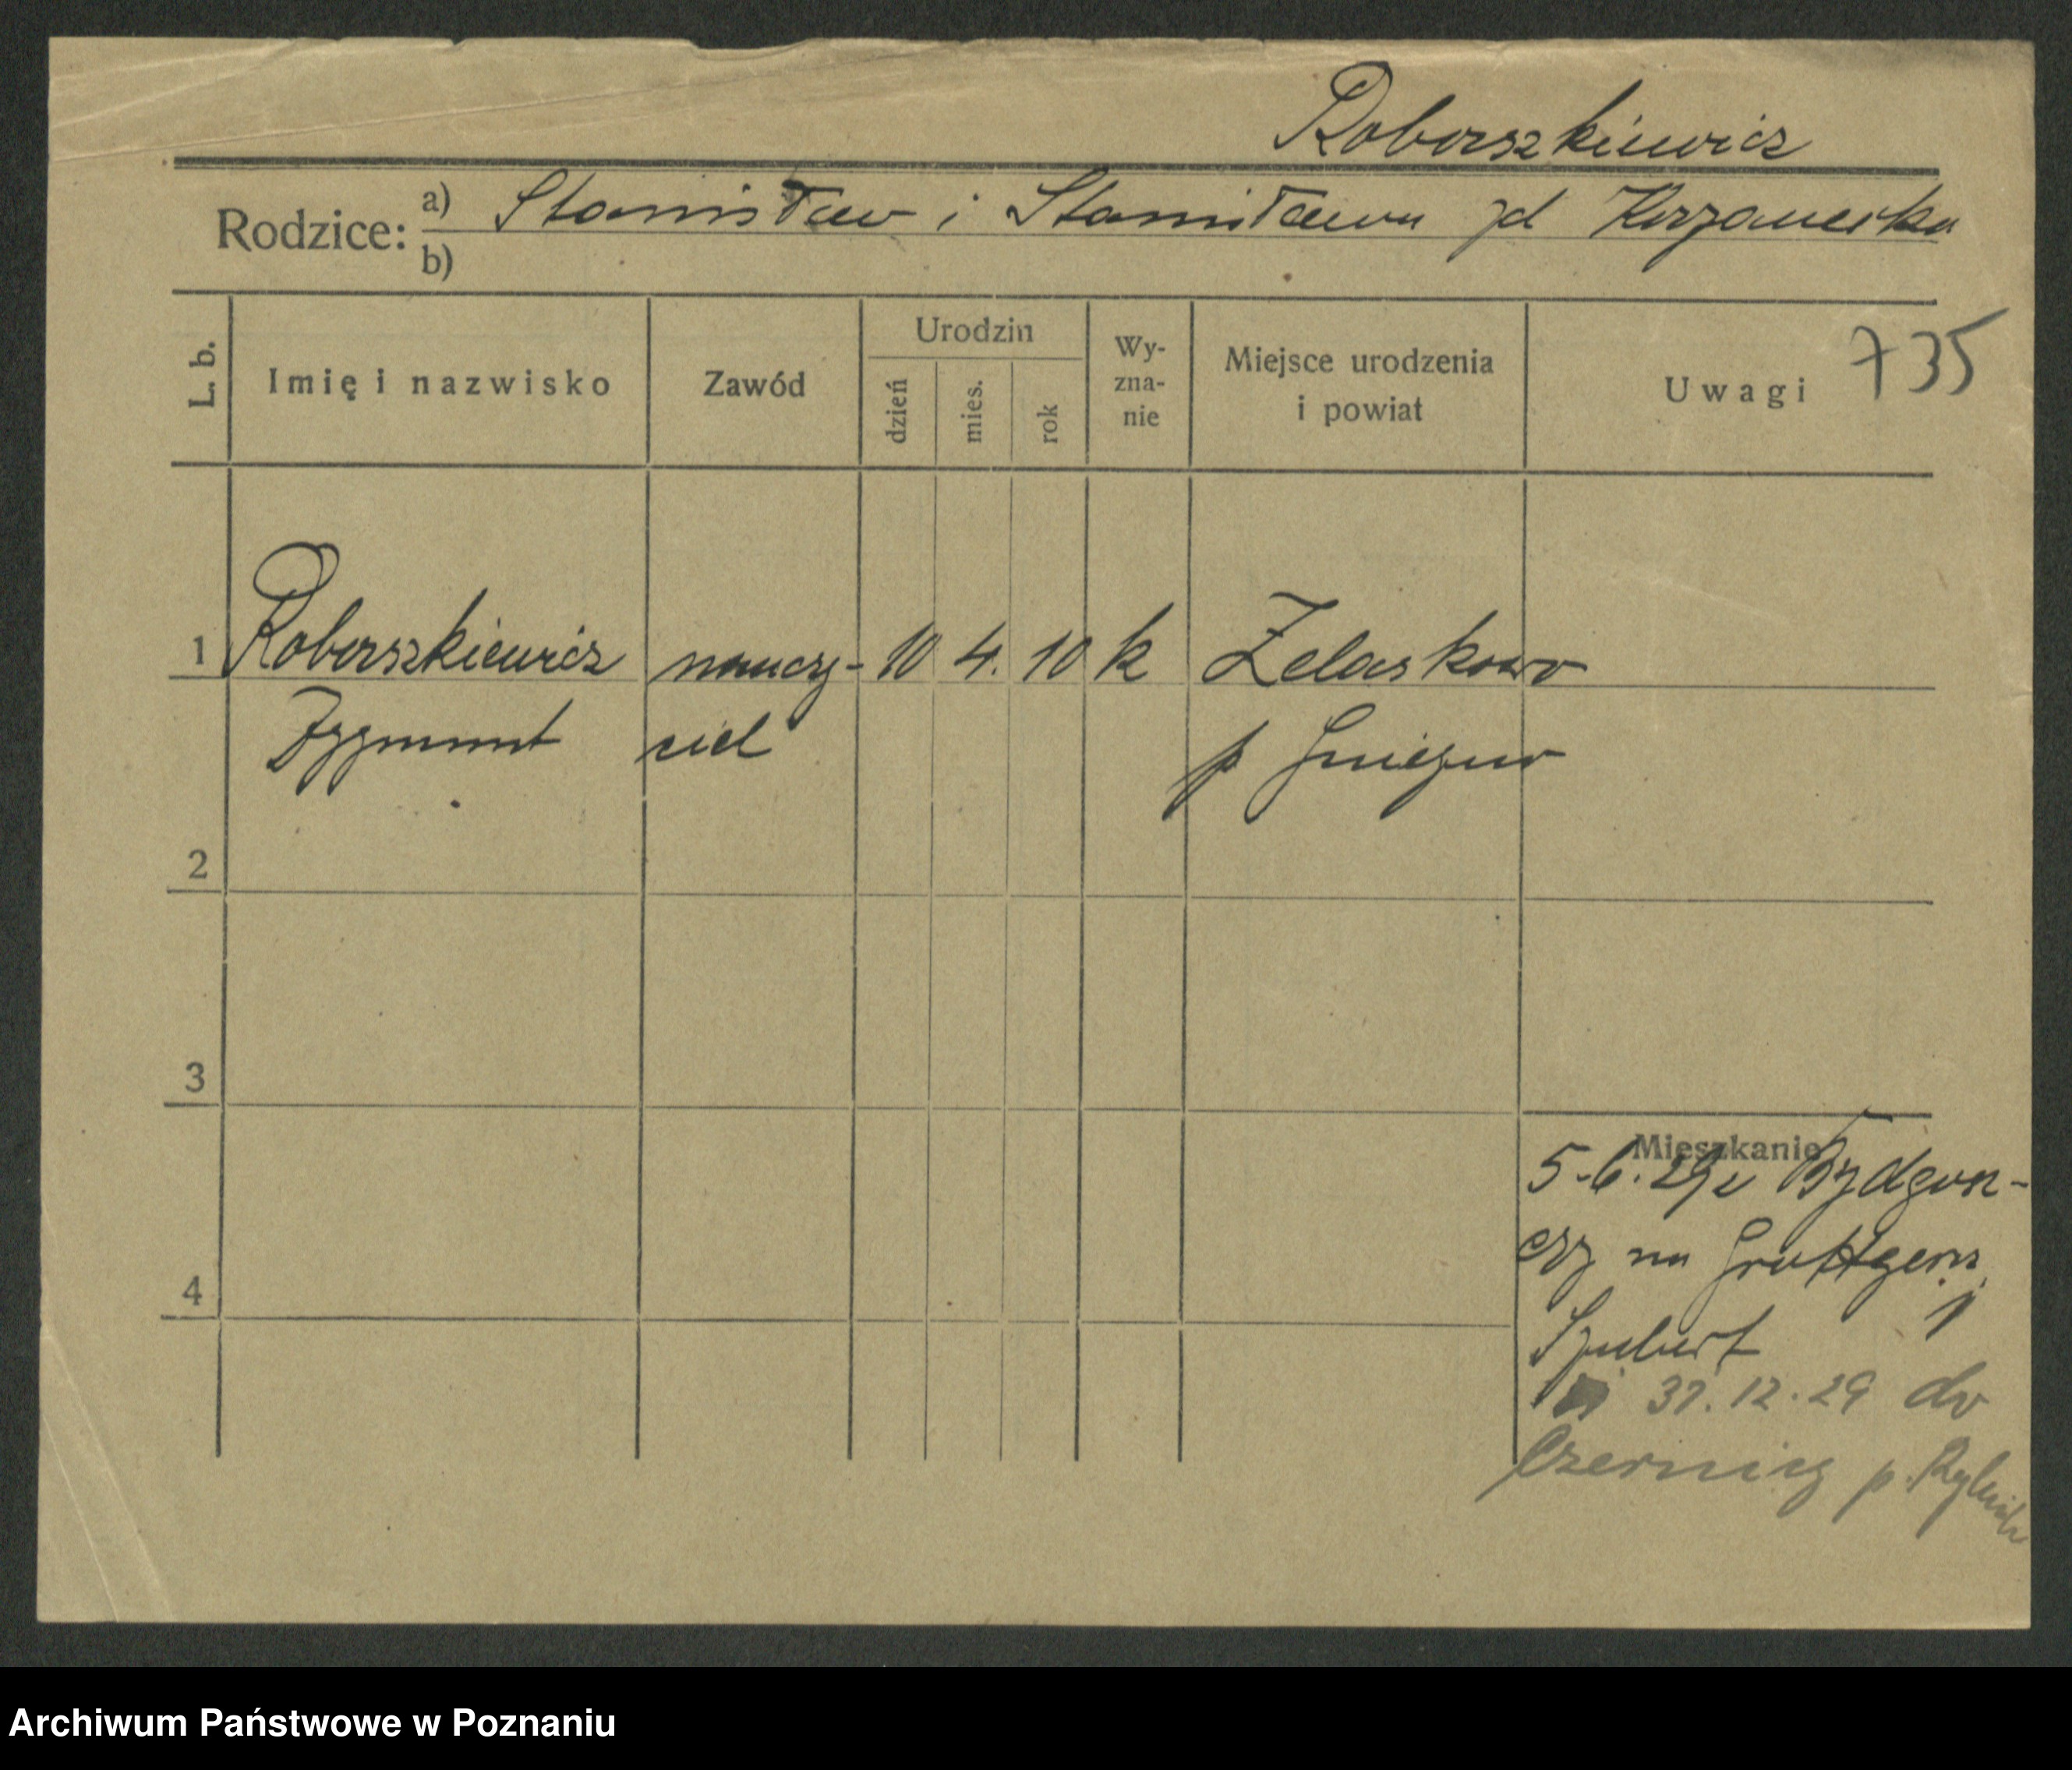 Roborszkiewicz
Rodzice: a) Stanisław i Stanisława zd
b)
L. b. Imię i nazwisko Zawód Urodzin dzień mies. rok Wy-zna-nie Miejsce urodzenia i powiat Uwagi 735
1 Roborszkiewicz nauczy- 10 4. 10 k Zelaskowo
Zygmunt ciel p Gniezno
2
3
4
Mieszkanie
5.6.29 z Bydgosz-
czy na Grottgera
1
Szubert
31.12.29 do
Czernicy p. Rybnik
Archiwum Państwowe w Poznaniu